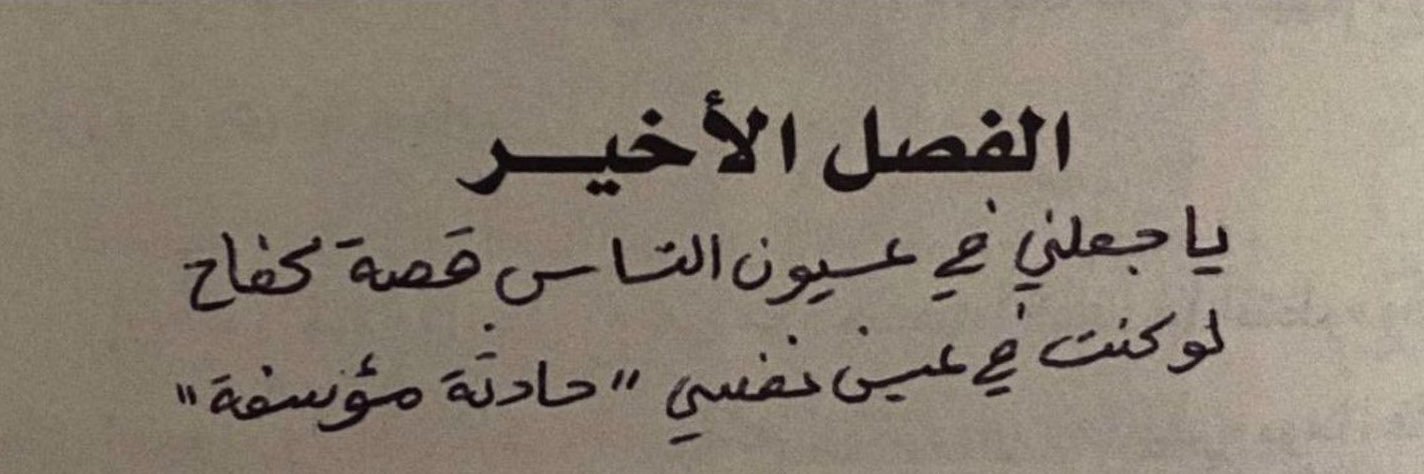 الفصل الأخير
يا جعلني في عيون الناس قصة كفاح
لو كنت في عين نفسي "حادثة مؤسفة"